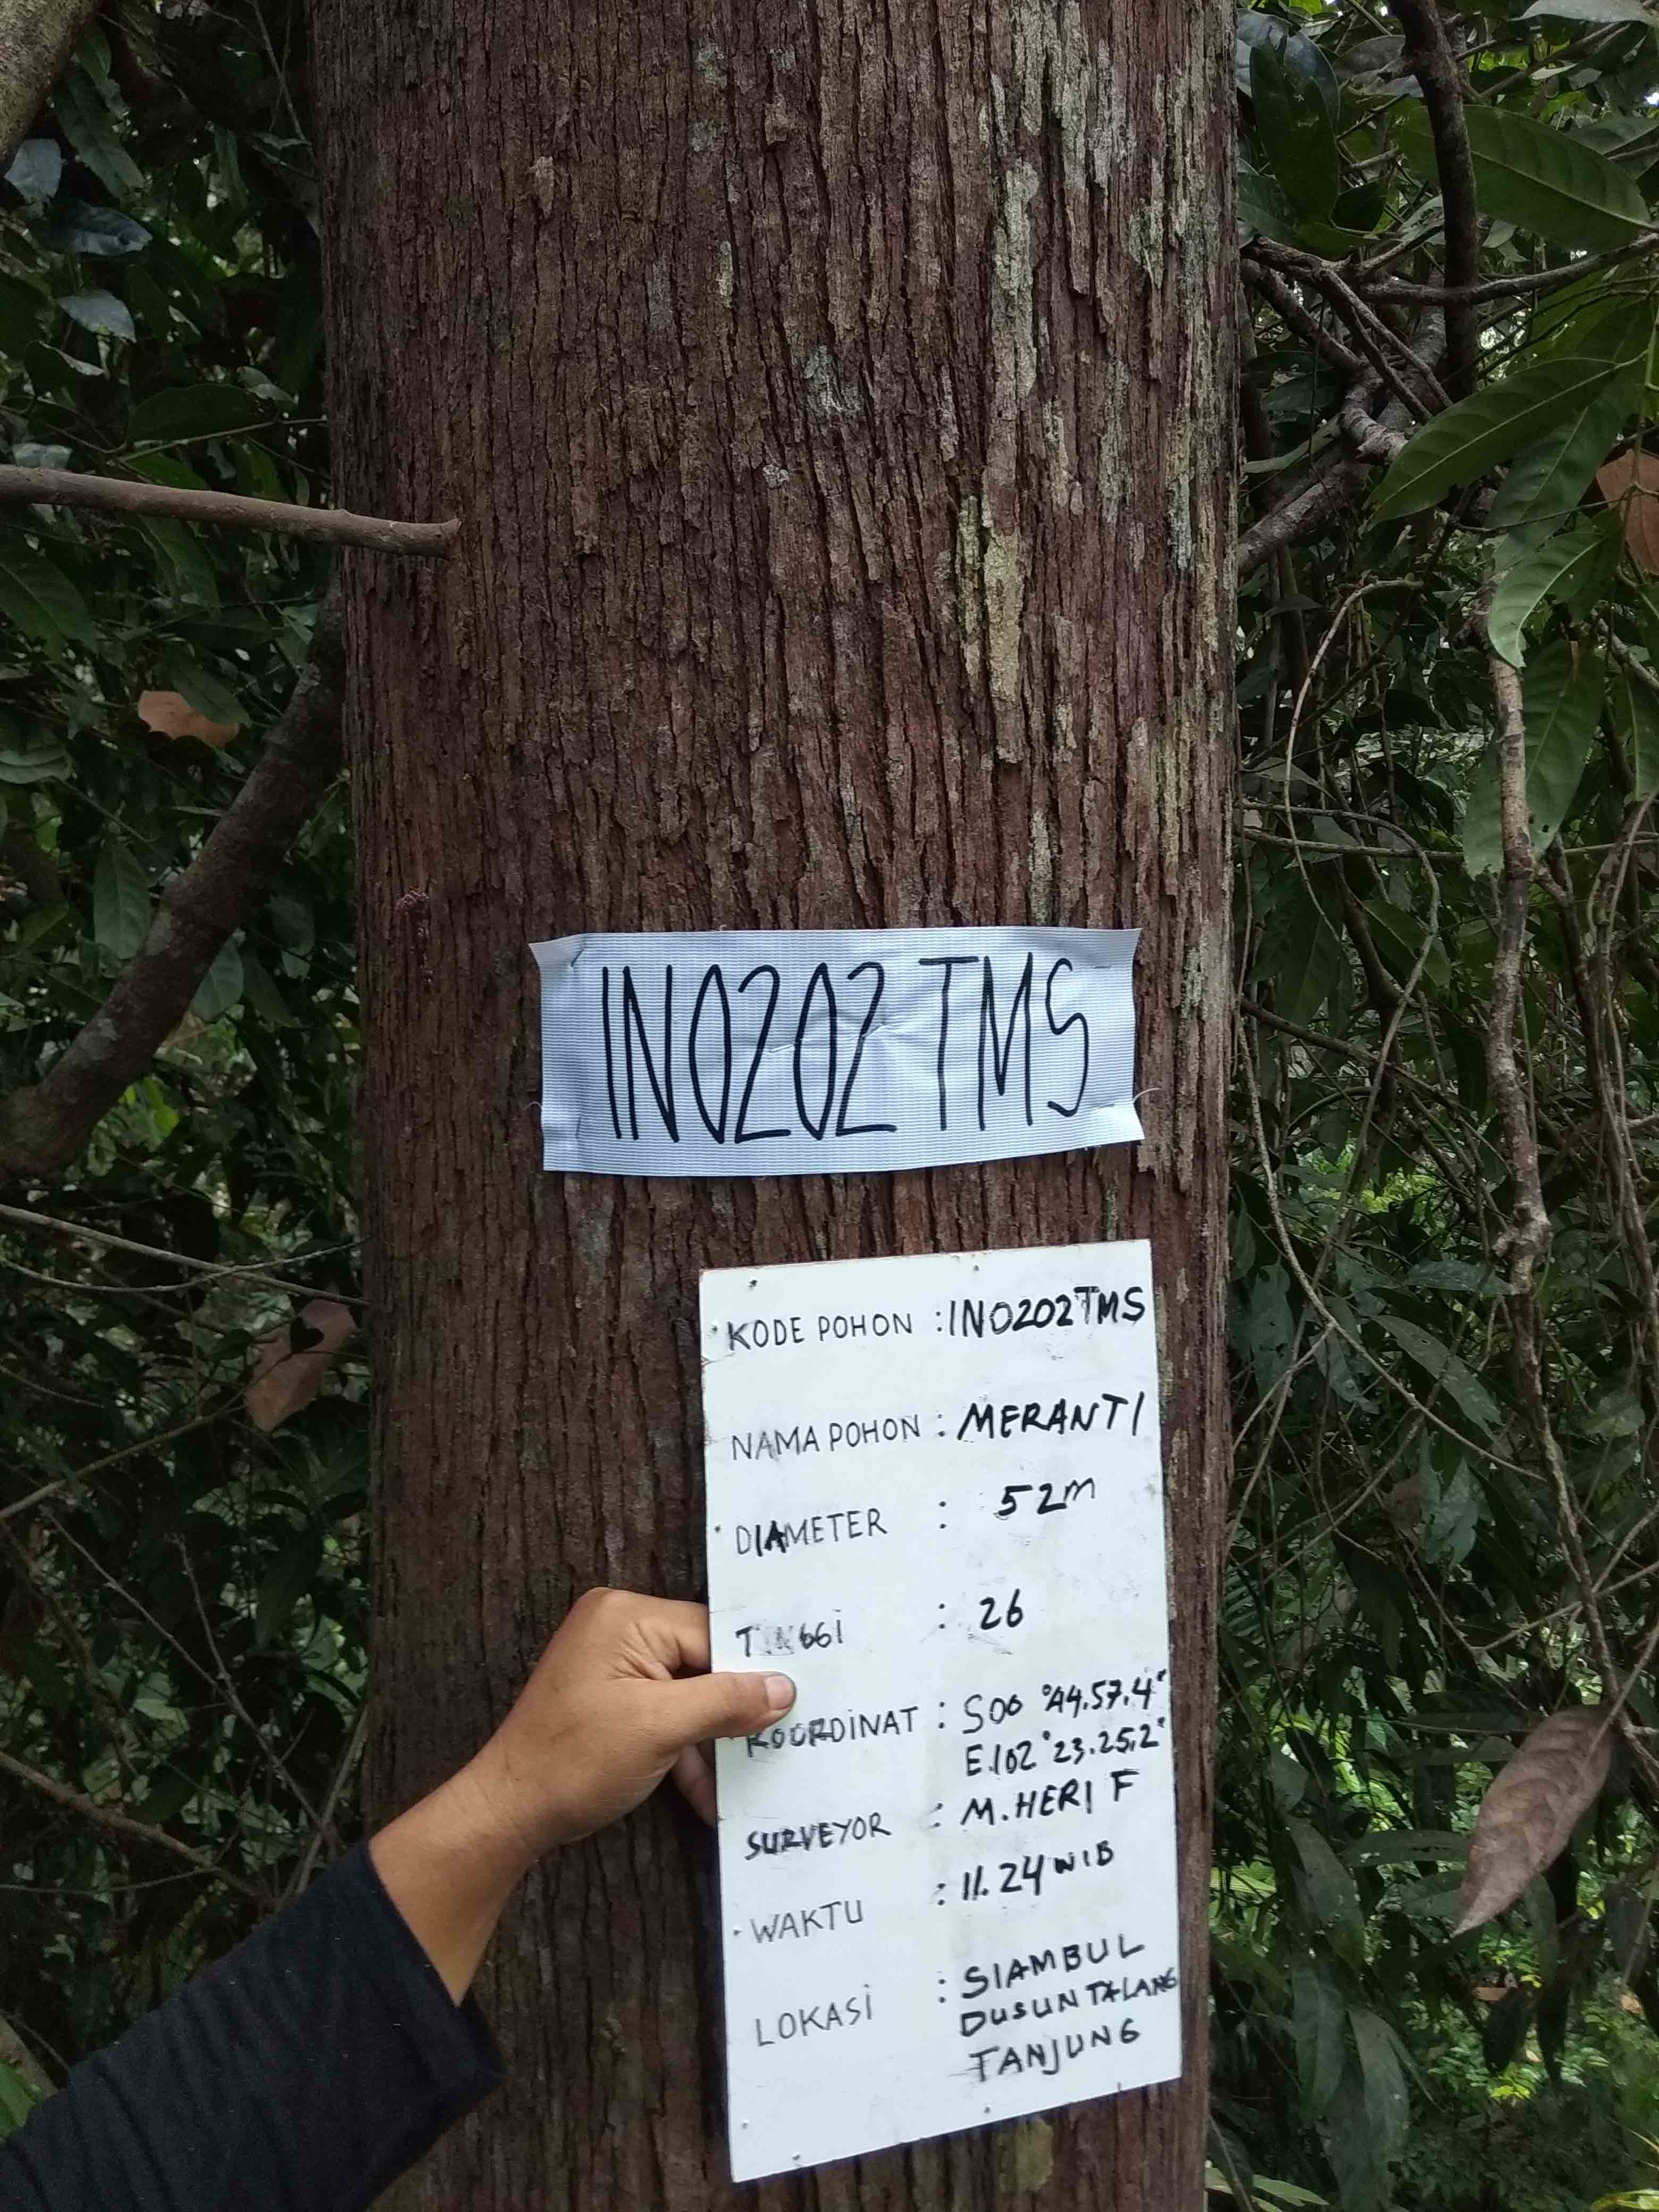 INO202TMS
KODE POHON : INO202TMS
NAMA POHON : MERANTI
DIAMETER : 52M
TINGGI : 26
KOORDINAT : S00°44.57.4"
E.102°23.25,2"
SURVEYOR : M. HERI F
WAKTU : 11.24 WIB
LOKASI : SIAMBUL
DUSUN TALANG
TANJUNG